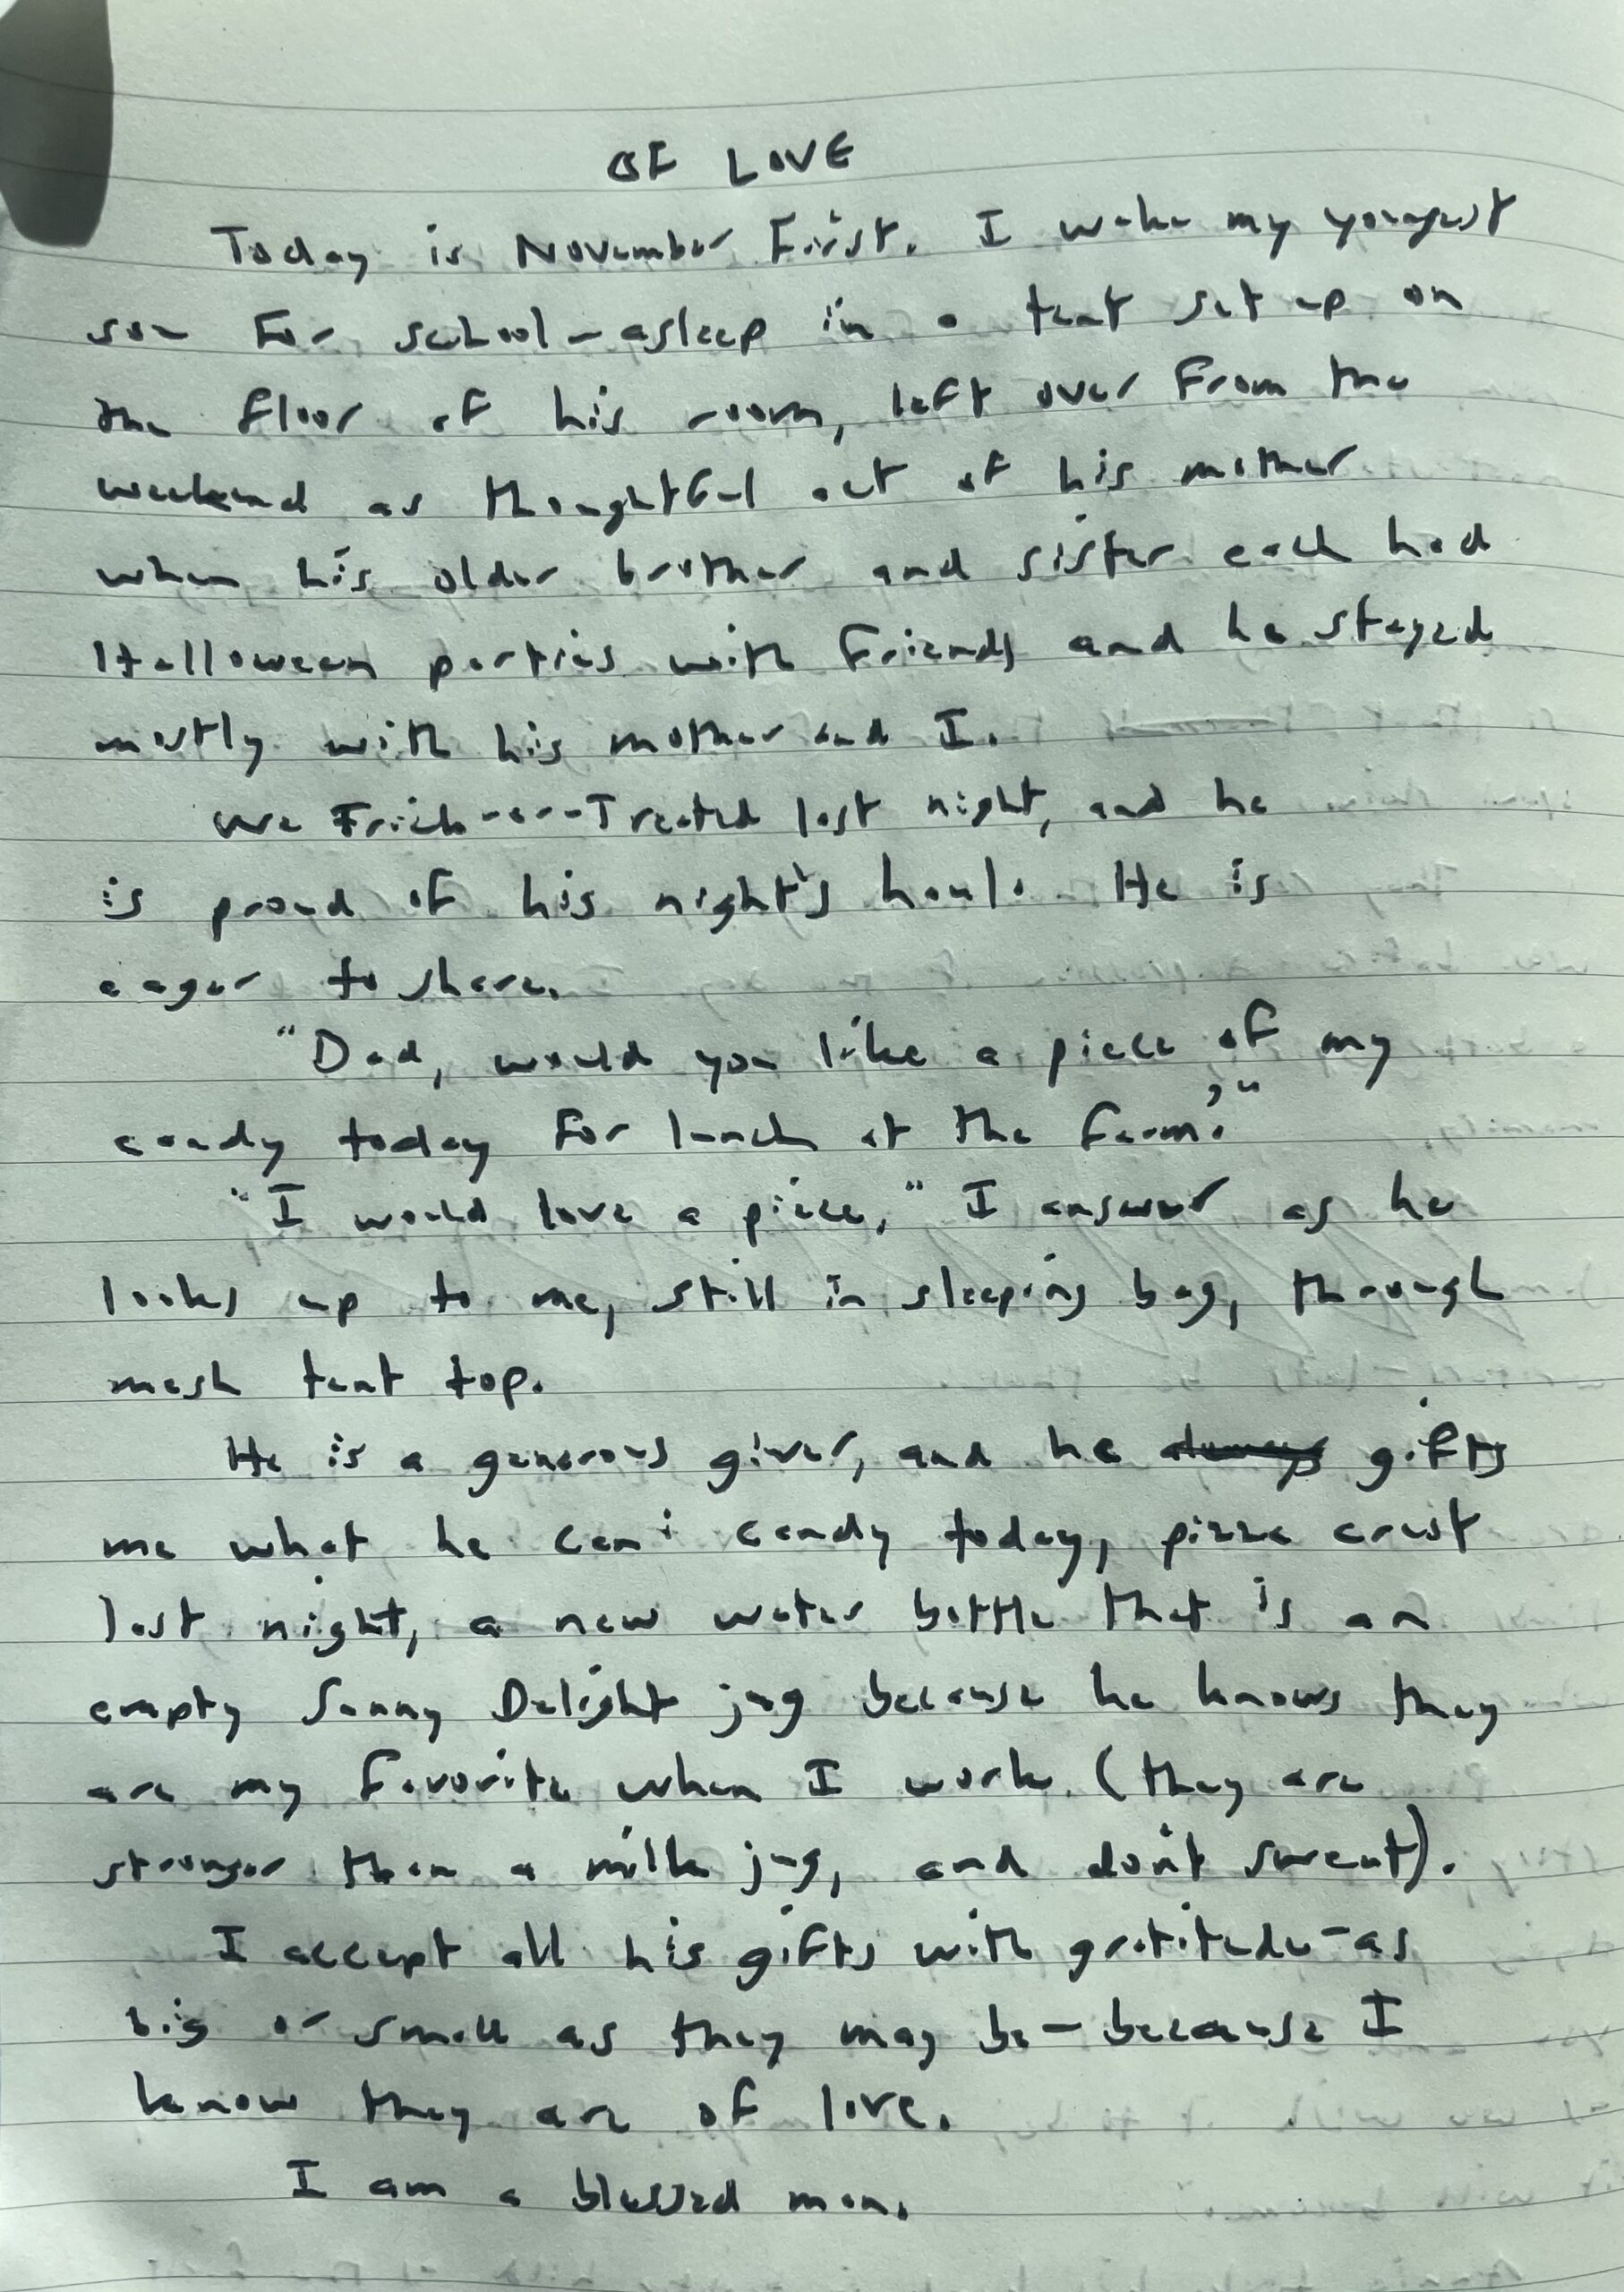 OF LOVE
Today is November First. I wake my youngest
son for school - asleep in a tent set up on
the floor of his room, left over from the
weekend as thoughtful act of his mother
when his older brother and sister each had
Halloween parties with friends and he stayed
mostly with his mother and I.
We Trick-or-Treated last night, and he
is proud of his night's haul. He is
eager to share.
"Dad, would you like a piece of my
candy today for lunch at the farm?"
"I would love a piece," I answer as he
looks up to me, still in sleeping bag, through
mesh tent top.
He is a generous giver, and he always gifts
me what he can: candy today, pizza crust
last night, a new water bottle that is an
empty Sunny Delight jug because he knows they
are my favorite when I work (they are
stronger than a milk jug, and don't sweat).
I accept all his gifts with gratitude - as
big or small as they may be - because I
know they are of love.
I am a blessed man.